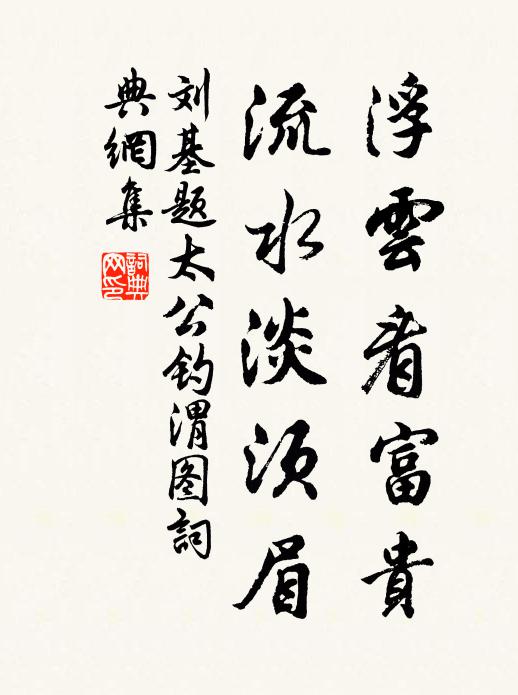 浮雲看富貴
流水淡須眉
刘基题太公钓渭图詞
典網集
詞典网印